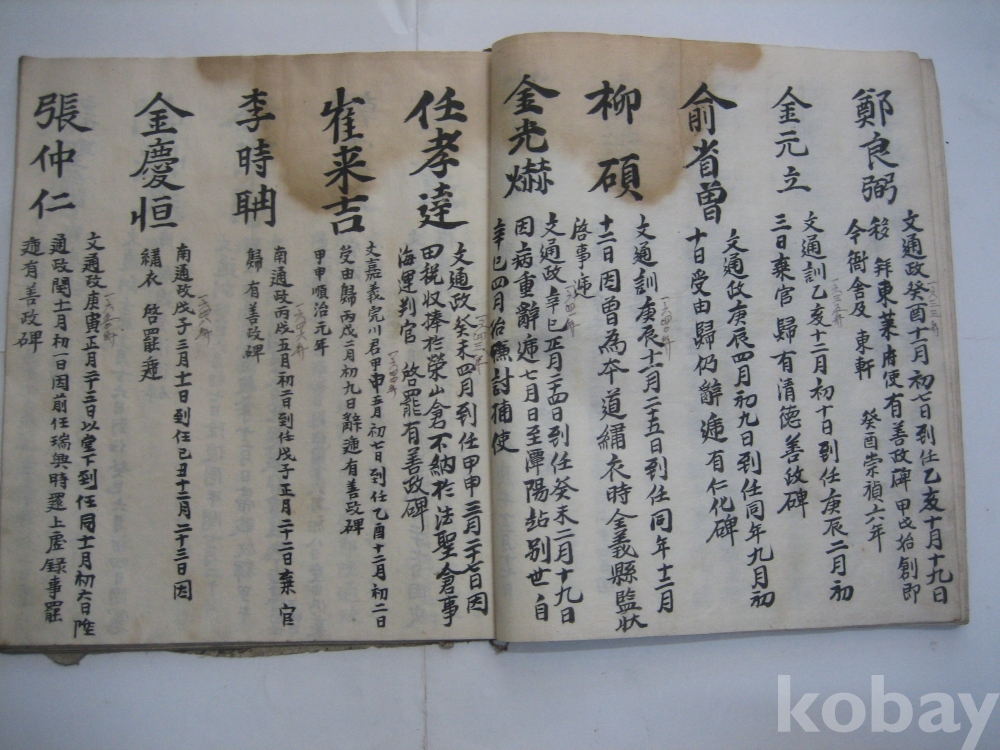 鄭良弼
文通政癸酉十一月初七日到任乙亥十月十九日
移拜東萊府使有善政碑甲戌始創即
今衙舍及東軒
癸酉崇禎六年
一六三三年
金元立
文通訓乙亥十二月初十日到任庚辰二月初
三日棄官歸有清德善政碑
一六三五年
俞省曾
文通政庚辰四月初九日到任同年九月初
十日受由歸仍辭遞有仁化碑
柳碩
文通訓庚辰十一月二十五日到任同年十二月
十二日因曾為本道繡衣時金義縣監狀
啓事遞
一六四〇年
金光爀
文通政辛巳正月二十四日到任癸未二月十九日
因病重辭遞七月日至潭陽站別世自
辛巳四月治兼討捕使
一六四一年
任孝達
文通政癸未四月到任甲申三月二十七日因
田稅收捧於榮山倉不納於法聖倉事
海運判官 啓罷有善政碑
一六四三年
崔来吉
文嘉義完川君甲申五月初七日到任乙酉十二月初二日
受由歸丙戌二月初九日辭遞有善政碑
甲申順治元年
一六四四年
李時聃
南通政丙戌五月初二日到任戊子正月二十二日棄官
歸有善政碑
一六四六年
金慶恒
南通政戊子三月十一日到任己丑十二月二十三日因
繡衣 啓罷遞
一六四八年
張仲仁
文通政庚寅正月二十三日以堂下到任同十一月初六日陞
通政閏十一月初一日因前任瑞興時還上虛錄事罷
遞有善政碑
一六五〇年
kobay